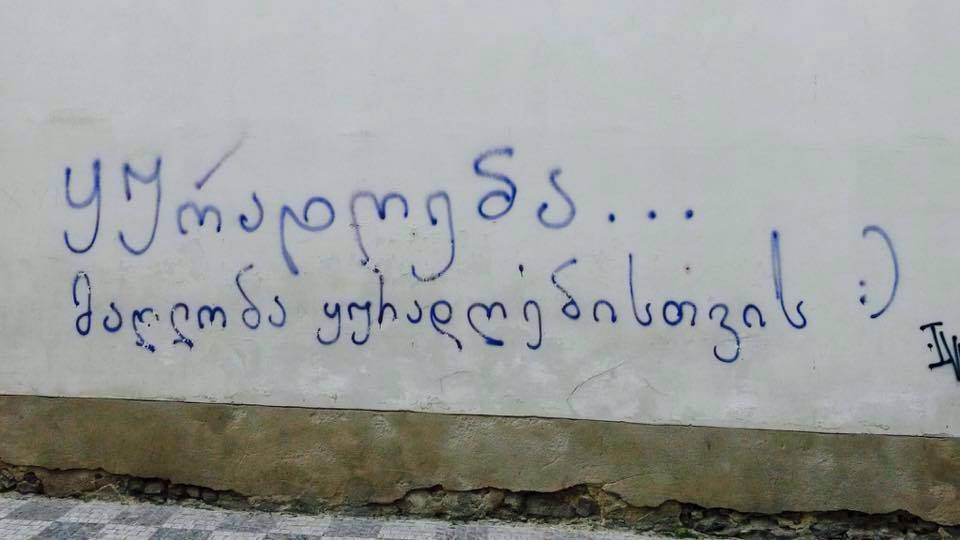 ყურადღება...
მადლობა ყურადღებისთვის :)